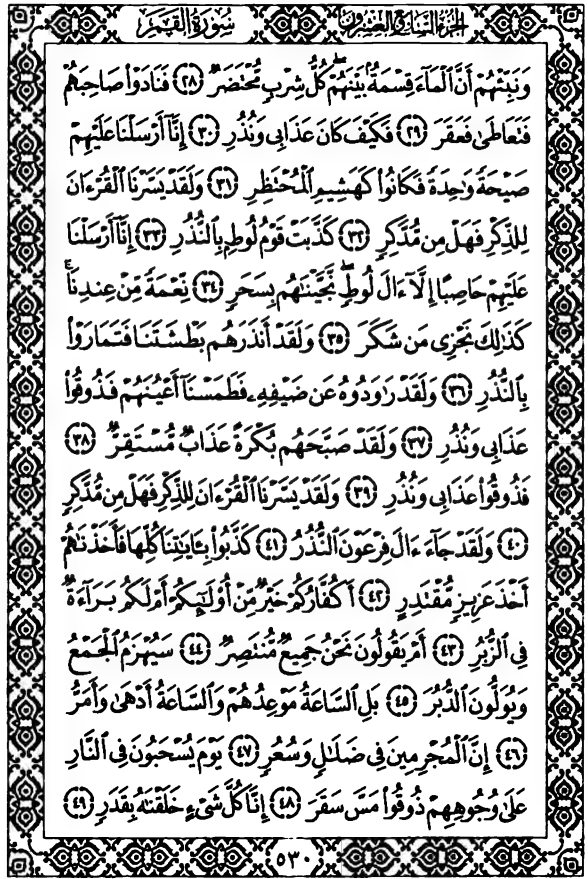 الجزء السابع والعشرون سورة القمر
وَنَبِّئْهُمْ أَنَّ ٱلْمَآءَ قِسْمَةٌۢ بَيْنَهُمْ ۖ كُلُّ شِرْبٍ مُّحْتَضَرٌ ﴿٢٨﴾ فَنَادَوْا۟ صَاحِبَهُمْ
فَتَعَاطَىٰ فَعَقَرَ ﴿٢٩﴾ فَكَيْفَ كَانَ عَذَابِى وَنُذُرِ ﴿٣٠﴾ إِنَّآ أَرْسَلْنَا عَلَيْهِمْ
صَيْحَةً وَٰحِدَةً فَكَانُوا۟ كَهَشِيمِ ٱلْمُحْتَظِرِ ﴿٣١﴾ وَلَقَدْ يَسَّرْنَا ٱلْقُرْءَانَ
لِلذِّكْرِ فَهَلْ مِن مُّدَّكِرٍ ﴿٣٢﴾ كَذَّبَتْ قَوْمُ لُوطٍۭ بِٱلنُّذُرِ ﴿٣٣﴾ إِنَّآ أَرْسَلْنَا
عَلَيْهِمْ حَاصِبًا إِلَّآ ءَالَ لُوطٍ ۖ نَّجَّيْنَٰهُم بِسَحَرٍ ﴿٣٤﴾ نِّعْمَةً مِّنْ عِندِنَا ۚ
كَذَٰلِكَ نَجْزِى مَن شَكَرَ ﴿٣٥﴾ وَلَقَدْ أَنذَرَهُم بَطْشَتَنَا فَتَمَارَوْا۟
بِٱلنُّذُرِ ﴿٣٦﴾ وَلَقَدْ رَٰوَدُوهُ عَن ضَيْفِهِۦ فَطَمَسْنَآ أَعْيُنَهُمْ فَذُوقُوا۟
عَذَابِى وَنُذُرِ ﴿٣٧﴾ وَلَقَدْ صَبَّحَهُم بُكْرَةً عَذَابٌ مُّسْتَقِرٌّ ﴿٣٨﴾
فَذُوقُوا۟ عَذَابِى وَنُذُرِ ﴿٣٩﴾ وَلَقَدْ يَسَّرْنَا ٱلْقُرْءَانَ لِلذِّكْرِ فَهَلْ مِن مُّدَّكِرٍ
﴿٤٠﴾ وَلَقَدْ جَآءَ ءَالَ فِرْعَوْنَ ٱلنُّذُرُ ﴿٤١﴾ كَذَّبُوا۟ بِـَٔايَٰتِنَا كُلِّهَا فَأَخَذْنَٰهُمْ
أَخْذَ عَزِيزٍ مُّقْتَدِرٍ ﴿٤٢﴾ أَكُفَّارُكُمْ خَيْرٌ مِّنْ أُو۟لَٰٓئِكُمْ أَمْ لَكُم بَرَآءَةٌ
فِى ٱلزُّبُرِ ﴿٤٣﴾ أَمْ يَقُولُونَ نَحْنُ جَمِيعٌ مُّنتَصِرٌ ﴿٤٤﴾ سَيُهْزَمُ ٱلْجَمْعُ
وَيُوَلُّونَ ٱلدُّبُرَ ﴿٤٥﴾ بَلِ ٱلسَّاعَةُ مَوْعِدُهُمْ وَٱلسَّاعَةُ أَدْهَىٰ وَأَمَرُّ
﴿٤٦﴾ إِنَّ ٱلْمُجْرِمِينَ فِى ضَلَٰلٍ وَسُعُرٍ ﴿٤٧﴾ يَوْمَ يُسْحَبُونَ فِى ٱلنَّارِ
عَلَىٰ وُجُوهِهِمْ ذُوقُوا۟ مَسَّ سَقَرَ ﴿٤٨﴾ إِنَّا كُلَّ شَىْءٍ خَلَقْنَٰهُ بِقَدَرٍ ﴿٤٩﴾
٥٣٠